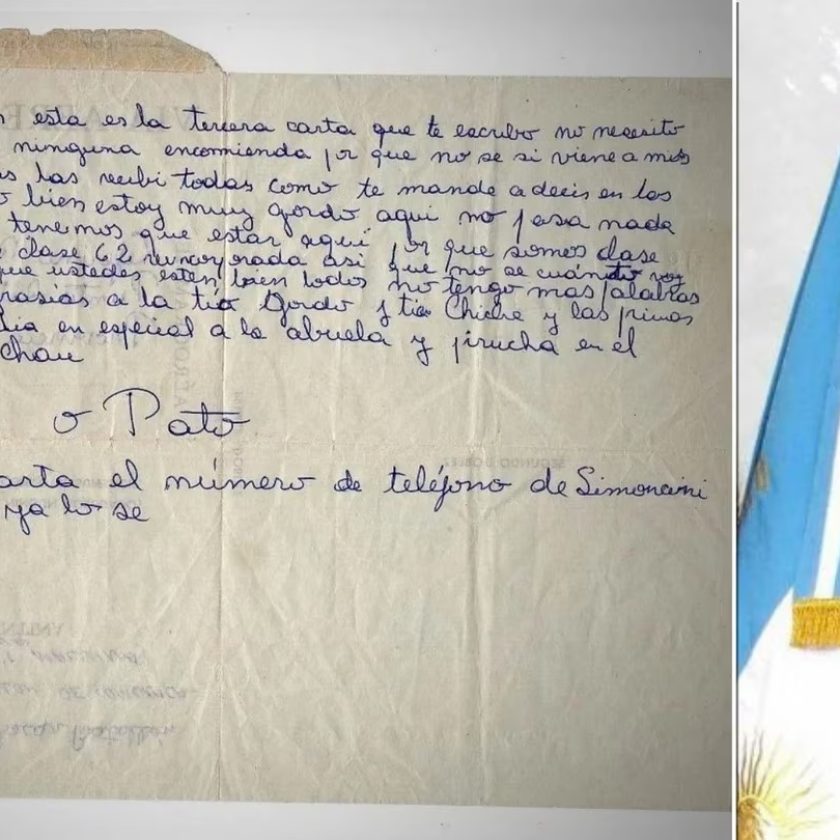 esta es la tercera carta que te escribo no necesito
ninguna encomienda por que no se si viene a mis
las recibi todas como te mande a decir en las
bien estoy muy gordo aqui no pasa nada
tenemos que estar aqui por que somos clase
clase 62 reincorporada asi que no se cuándo voy
que ustedes esten bien todos no tengo mas palabras
grasias a la tia Gordo y tia Chiche y las primas
en especial a la abuela y pirucha en el
chau
o Pato
arta el número de teléfono de Simoncini
ya lo se